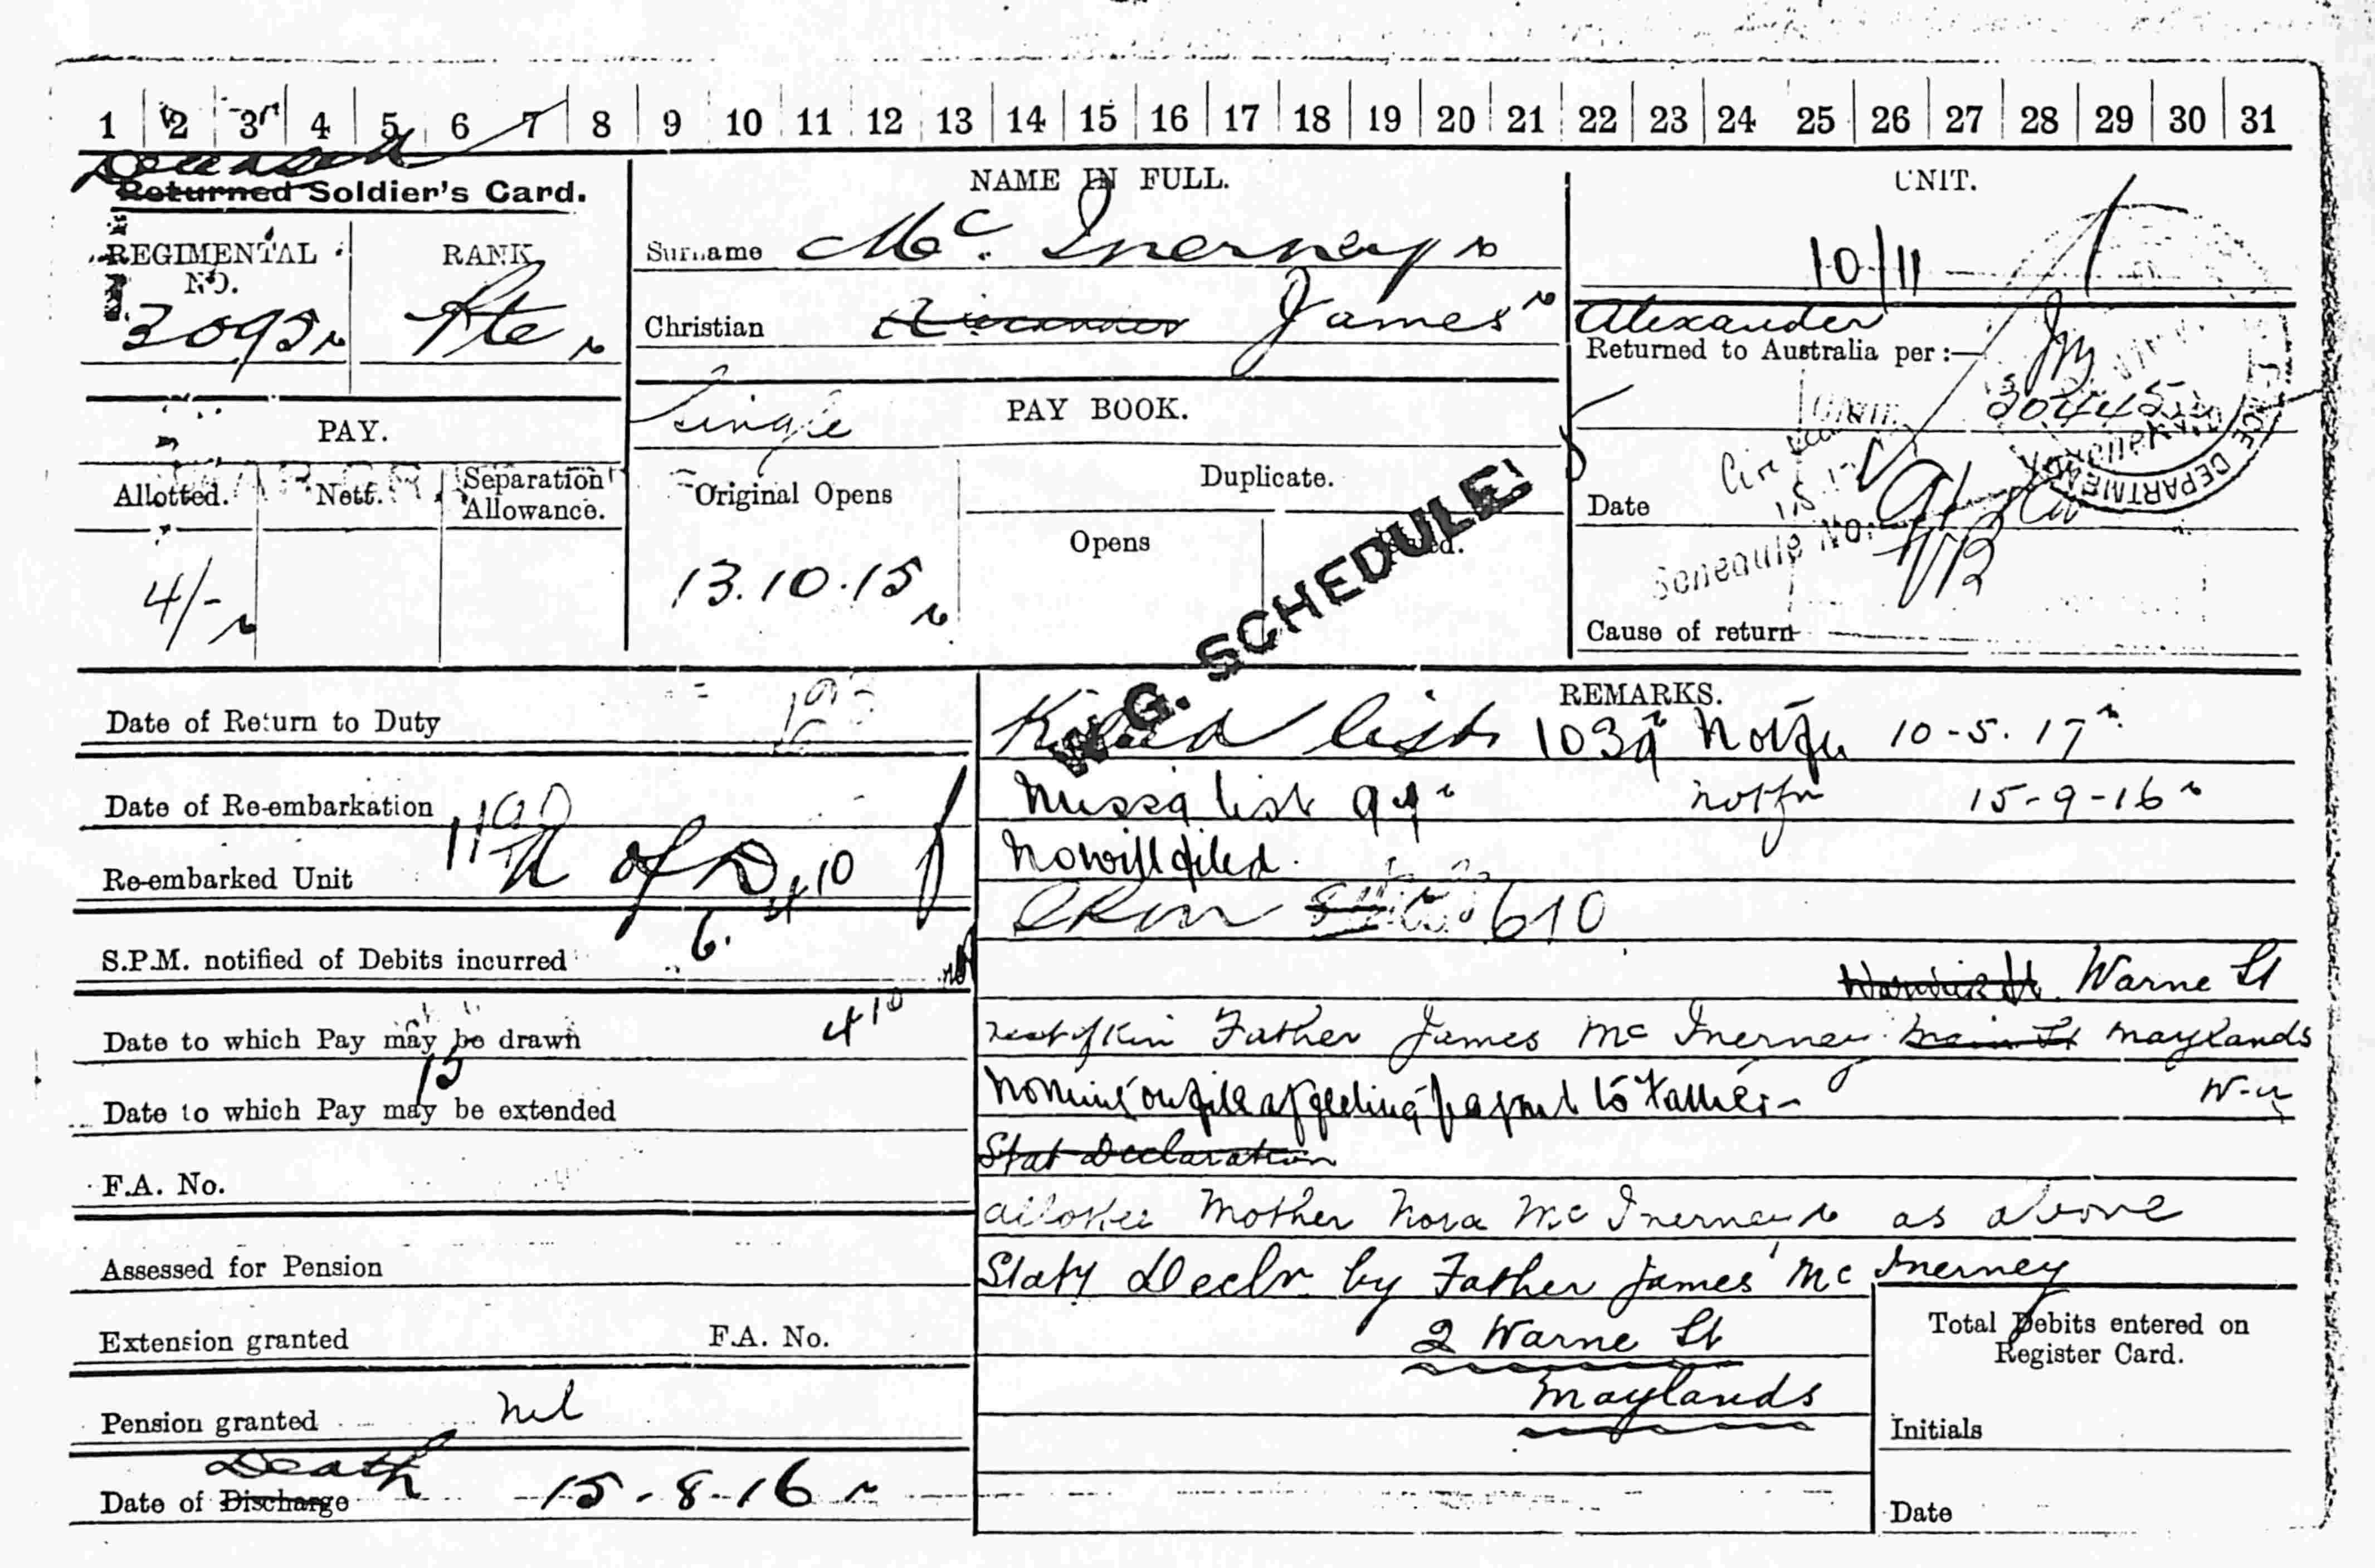 1 2 3 4 5 6 7 8 9 10 11 12 13 14 15 16 17 18 19 20 21 22 23 24 25 26 27 28 29 30 31
Deceased
Returned Soldier's Card.
REGIMENTAL NO.
3095
RANK
Pte
NAME IN FULL.
Surname Mc. Inerney
Christian Alexander James
UNIT.
10/11
Alexander
Returned to Australia per:—
Date
Schedule No.
Cause of return
PAY.
Allotted. Nett. Separation Allowance.
4/-
Single
PAY BOOK.
Original Opens
13.10.15
Duplicate.
Opens
W.G. SCHEDULE
Date of Return to Duty
Date of Re-embarkation
Re-embarked Unit
of D
S.P.M. notified of Debits incurred
Date to which Pay may be drawn
Date to which Pay may be extended
F.A. No.
Assessed for Pension
Extension granted F.A. No.
Pension granted nil
Death
Date of Discharge 15-8-16
REMARKS.
Killed list 103a Notfn 10-5.17
Missg list notfn 15-9-16
No will filed.
610
Warwick St. Warne St
next of kin Father James Mc Inerney Main St Maylands
W-a
Stat Declaration
allottee Mother Nora Mc Inerney as above
Staty Declr by Father James Mc Inerney
2 Warne St
Maylands
Total Debits entered on
Register Card.
Initials
Date